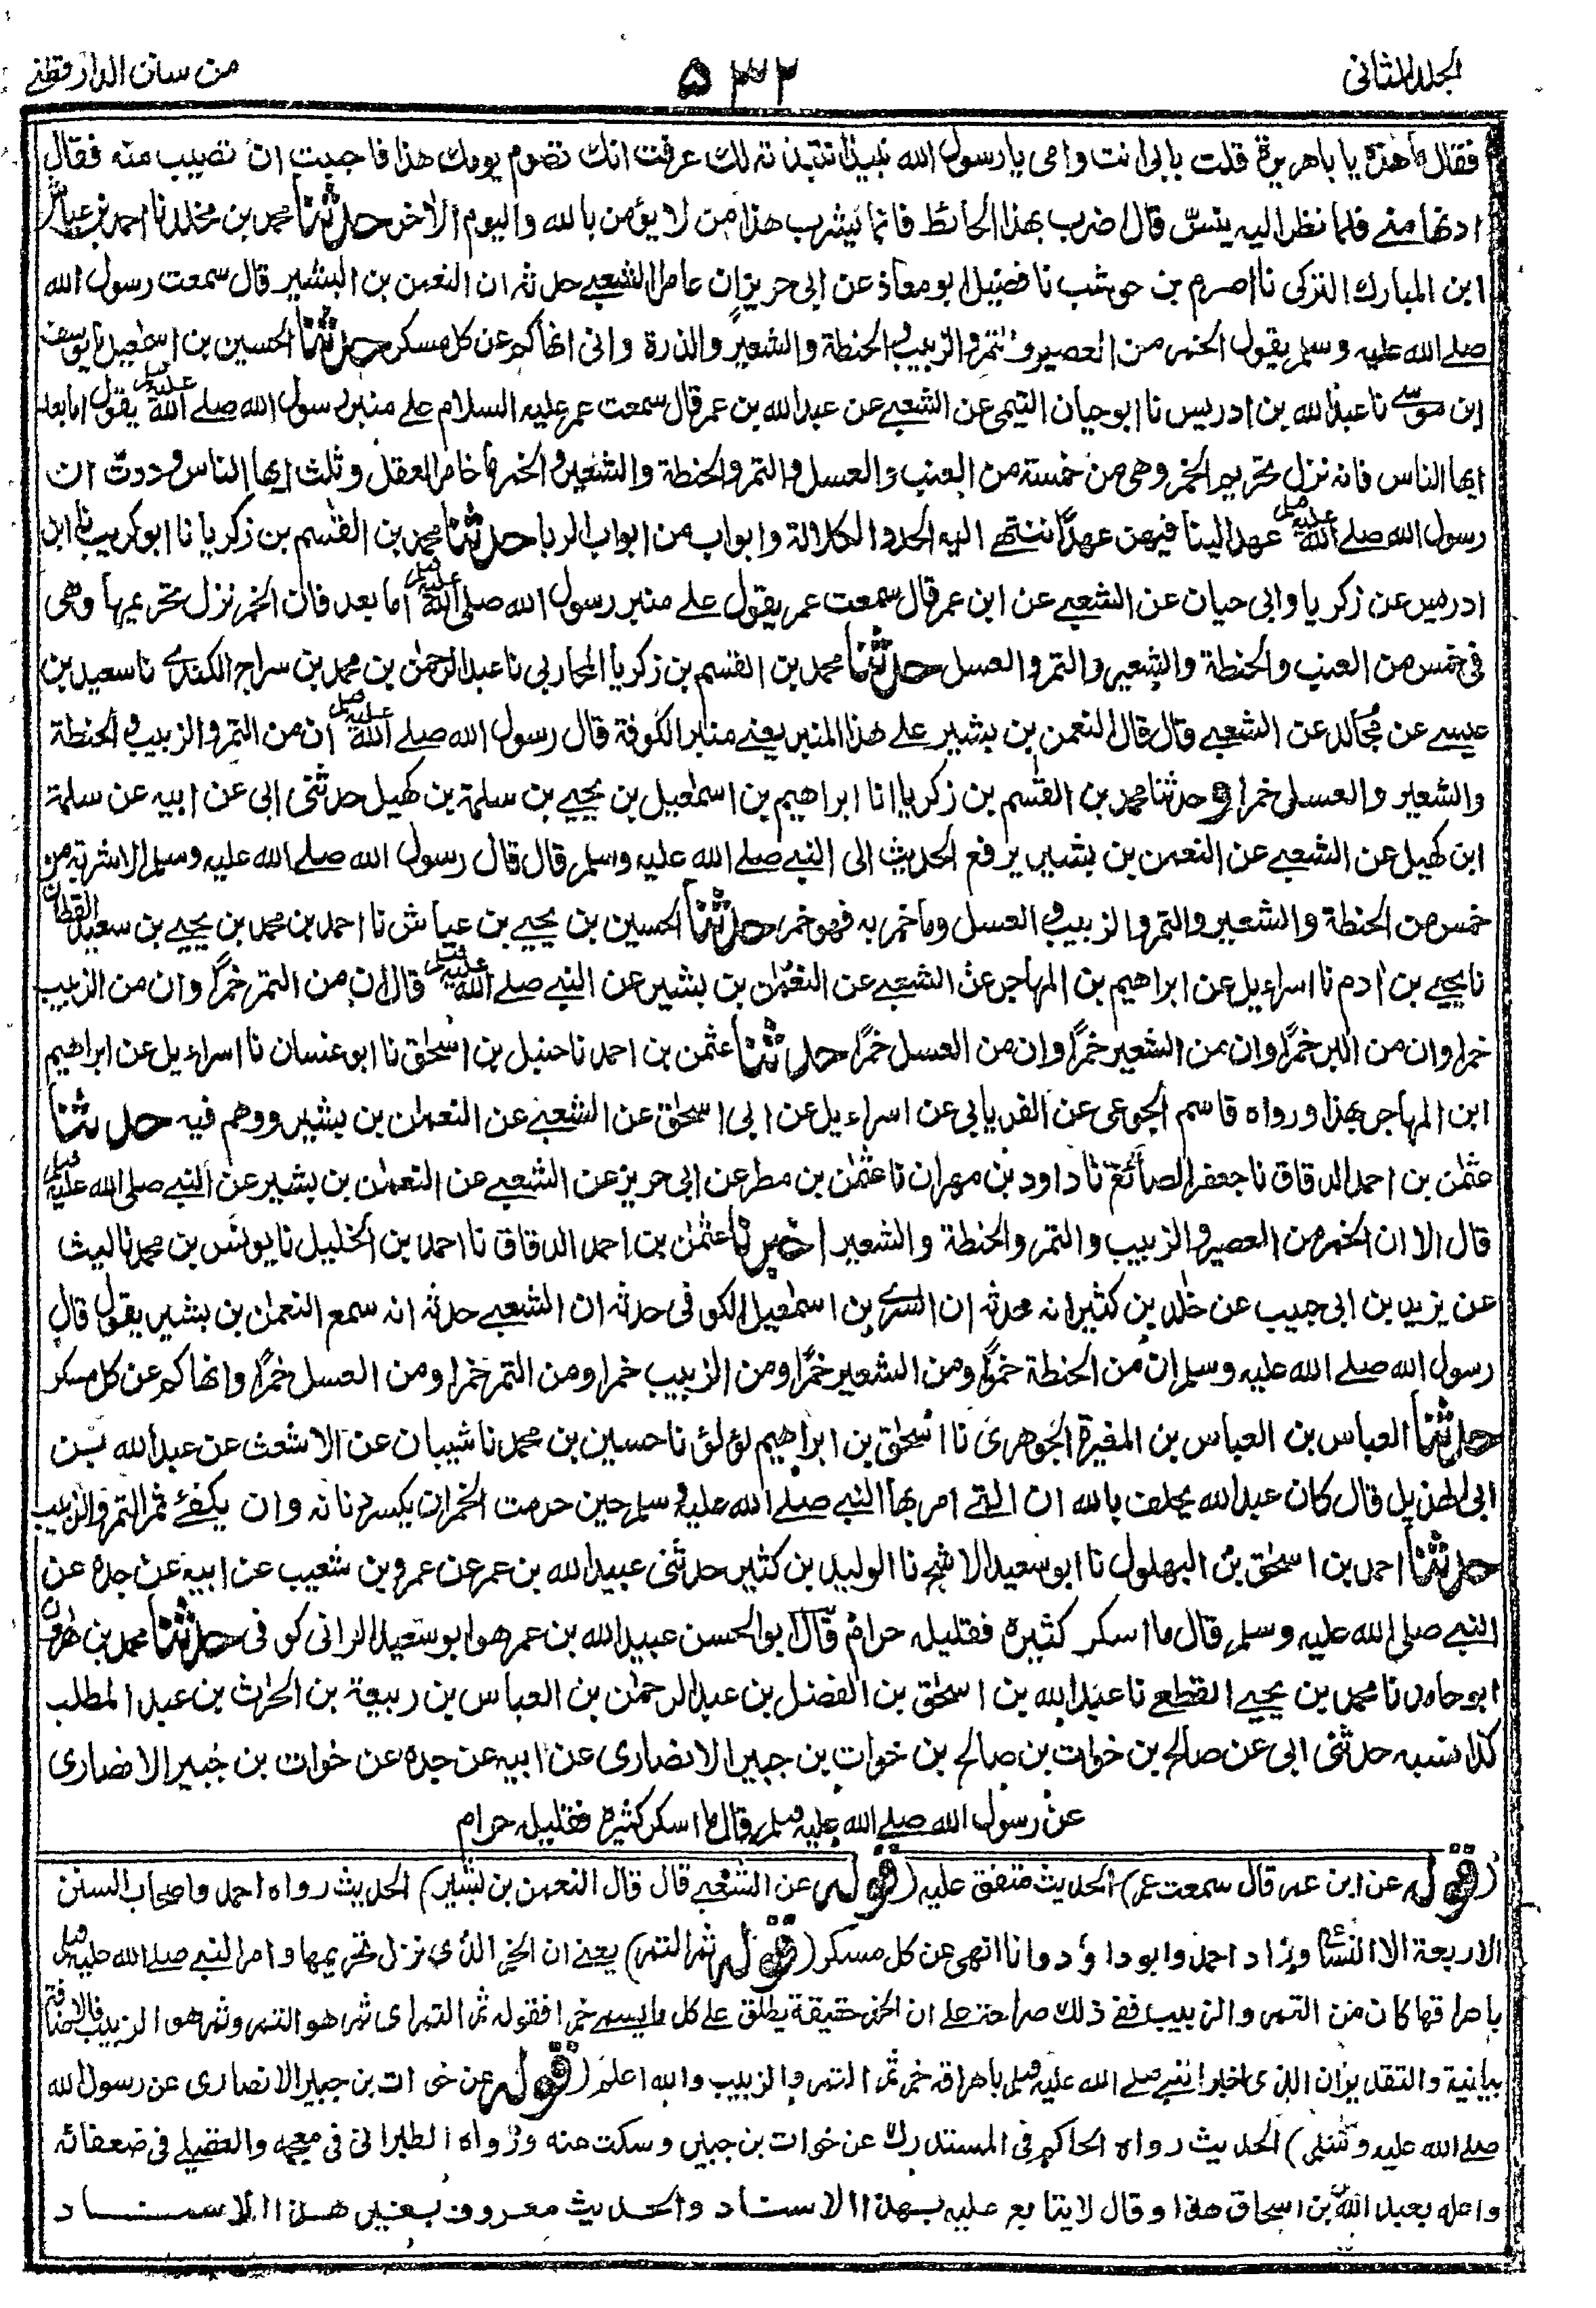 الجلد الثاني
۵۳۲
من سنن الدارقطنے
فقال ما هذه يا باهريرة قلت بابى انت وامى يا رسول الله نبيذا نتبذته لك عرفت انك تصوم يومك هذا فاحببت ان تصيب منه فقال
ادنها منے فلما نظر اليه ينشّ قال اضرب بهذا الحائط فانما يشرب هذا من لا يؤمن بالله واليوم الاخر حدثنا محمد بن مخلد نا احمد بن عباس
ابن المبارك التركى نا اصرم بن حوشب نا فضيل ابو معاذ عن ابى حريز ان عامر الشعبے حدثه ان النعمن بن البشير قال سمعت رسول الله
صلے الله عليه وسلم يقول الخمر من العصير والتمر والزبيب والحنطة والشعير والذرة وانى انهاكم عن كل مسكر حدثنا الحسين بن اسمٰعيل نا يوسف
ابن موسے نا عبد الله بن ادريس نا ابو حيان التيمى عن الشعبے عن عبد الله بن عمر قال سمعت عمر عليه السلام علے منبر رسول الله صلے الله عليه وسلم يقول اما بعد
ايها الناس فانه نزل تحريم الخمر وهى من خمسة من العنب والعسل والتمر والحنطة والشعير والخمر ما خامر العقل وثلث ايها الناس وددت ان
رسول الله صلے الله عليه وسلم عهد الينا فيهن عهدًا ننتهے اليه الجد والكلالة وابواب من ابواب الربا حدثنا محمد بن القٰسم بن زكريا نا ابو كريب نا ابن
ادريس عن زكريا وابى حيان عن الشعبے عن ابن عمر قال سمعت عمر يقول علے منبر رسول الله صلى الله عليه وسلم اما بعد فان الخمر نزل تحريمها وهى
فى خمس من العنب والحنطة والشعير والتمر والعسل حدثنا محمد بن القٰسم بن زكريا المحاربى نا عبد الرحمٰن بن محمد بن سراج الكندے نا سعيد بن
عيسے عن مجالد عن الشعبے قال قال النعمٰن بن بشير علے هذا المنبر يعنے منبر الكوفة قال رسول الله صلے الله عليه وسلم ان من التمر والزبيب والحنطة
والشعير والعسل خمرا و حدثنا محمد بن القٰسم بن زكريا انا ابراهيم بن اسمٰعيل بن يحيے بن سلمة بن كهيل حدثنى ابى عن ابيه عن سلمة
ابن كهيل عن الشعبے عن النعمن بن بشير يرفع الحديث الى النبے صلے الله عليه وسلم قال قال رسول الله صلے الله عليه وسلم الاشربة من
خمس من الحنطة والشعير والتمر والزبيب والعسل وما خمر به فهو خمر حدثنا الحسين بن يحيے بن عياش نا احمد بن محمد بن يحيے بن سعيد القطان
نا يحيے بن اٰدم نا اسراءيل عن ابراهيم بن المهاجر عن الشعبے عن النعمٰن بن بشير عن النبے صلے الله عليه وسلم قال ان من التمر خمرًا وان من الزبيب
خمرا وان من البر خمرًا وان من الشعير خمرًا وان من العسل خمرًا حدثنا عثمٰن بن احمد نا حنبل بن اسحٰق نا ابو غسان نا اسراءيل عن ابراهيم
ابن المهاجر بهذا ورواه قاسم الجوعى عن الفريابى عن اسراءيل عن ابى اسحٰق عن الشعبے عن النعمان بن بشير ووهم فيه حدثنا
عثمٰن بن احمد الدقاق نا جعفر الصائغ نا داود بن مهران نا عثمٰن بن مطر عن ابى حريز عن الشعبے عن النعمٰن بن بشير عن النبے صلى الله عليه وسلم
قال الا ان الخمر من العصير والزبيب والتمر والحنطة والشعير اخبرنا عثمٰن بن احمد الدقاق نا احمد بن الخليل نا يونس بن محمد نا ليث
عن يزيد بن ابى حبيب عن خٰلد بن كثير انه حدثه ان السرے بن اسمٰعيل الكوفى حدثه ان الشعبے حدثه انه سمع النعمٰن بن بشير يقول قال
رسول الله صلے الله عليه وسلم ان من الحنطة خمرًا ومن الشعير خمرًا ومن الزبيب خمرا ومن التمر خمرا ومن العسل خمرًا وانهاكم عن كل مسكر
حدثنا العباس بن العباس بن المغيرة الجوهرى نا اسحٰق بن ابراهيم لؤلؤ نا حسين بن محمد نا شيبان عن الاشعث عن عبد الله بن
ابى الهذيل قال كان عبد الله يحلف بالله ان التے امر بها النبے صلے الله عليه وسلم حين حرمت الخمر ان يكسر دنانه وان يكفئ ثمر التمر والزبيب
حدثنا احمد بن اسحٰق بن البهلول نا ابو سعيد الاشج نا الوليد بن كثير حدثنى عبيد الله بن عمر عن عمرو بن شعيب عن ابيه عن جده عن
النبے صلى الله عليه وسلم قال ما اسكر كثيره فقليله حرام قال ابو الحسن عبيد الله بن عمر هو ابو سعيد الرانى كوفى حدثنا محمد بن هٰرون
ابو حامد نا محمد بن يحيے القطعے نا عبد الله بن اسحٰق بن الفضل بن عبد الرحمٰن بن العباس بن ربيعة بن الحٰرث بن عبد المطلب
كذا نسبه حدثنى ابى عن صالح بن خوات بن صالح بن خوات بن جبير الانصارى عن ابيه عن جده عن خوات بن جبير الانصارى
عن رسول الله صلے الله عليه وسلم قال ما اسكر كثيره فقليله حرام
(قوله عن ابن عمر قال سمعت عمر) الحديث متفق عليه (قوله عن الشعبے قال قال النعمن بن بشير) الحديث رواه احمد واصحاب السنن
الاربعة الا النسائے وزاد احمد وابو داؤد وانا انهى عن كل مسكر (قوله ثمر التمر) يعنے ان الخمر الذى نزل تحريمها وامر النبے صلے الله عليه وسلم
باهراقها كان من التمر والزبيب ففے ذلك صراحة علے ان الخمر حقيقة يطلق علے كل ما يسمے خمرا فقوله ثمر التمر اى ثمر هو التمر وثمر هو الزبيب فالاضافة
بيانية والتقدير ان الذى اخبر النبے صلے الله عليه وسلم باهراقه خمر ثمر التمر والزبيب والله اعلم (قوله عن خوات بن جبير الانصارى عن رسول الله
صلے الله عليه وسلم) الحديث رواه الحاكم فى المستدرك عن خوات بن جبير وسكت عنه ورواه الطبرانى فى معجمه والعقيلے فى ضعفائه
واعله بعبد الله بن اسحاق هذا وقال لا يتابع عليه بهذا الاسناد والحديث معروف بغير هذا الاسناد